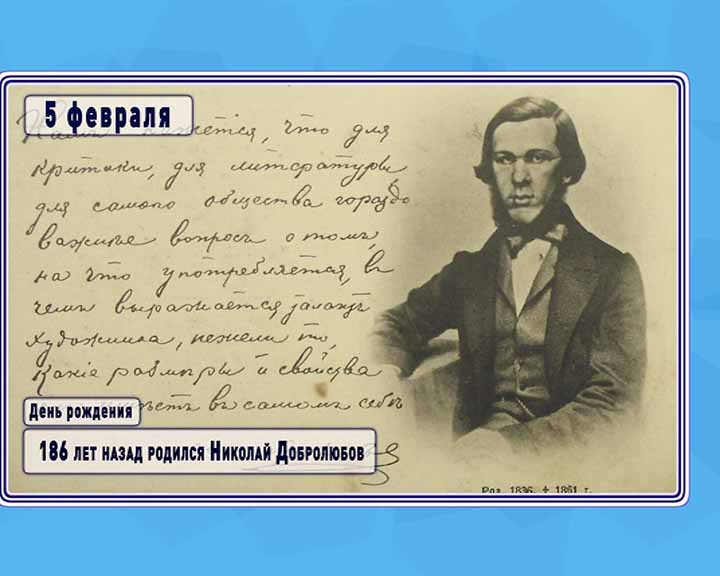 5 февраля
кажется, что для
критики, для литературы,
для самого общества гораздо
важнѣе вопросъ о томъ,
на что употребляется, въ
чемъ выражается талантъ
художника, нежели то,
какіе размѣры и свойства
въ самомъ себѣ
День рождения
186 лет назад родился Николай Добролюбов
Род. 1836. † 1861 г.